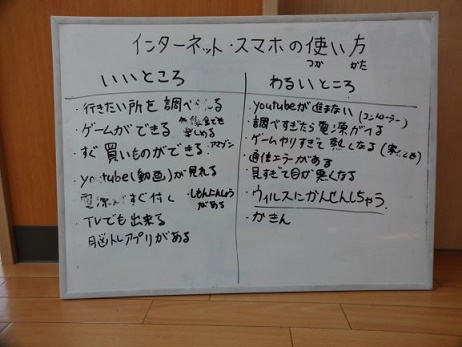 インターネット・スマホの使い方
つか かた
いいところ
・行きたい所を調べられる
・ゲームができる
楽しめる
・すぐ買いものができる アマゾン
・youtube(動画)が見れる
・電源がすぐ付く ・しもんにんしょうがある
・TVでも出来る
・脳トレアプリがある
わるいところ
・youtubeが進まない(コントローラー)
・調べすぎたら電源がきる
・ゲームやりすぎて熱くなる
・通信エラーがある
・見すぎて目が悪くなる
・ウィルスにかんせんしちゃう
・かきん